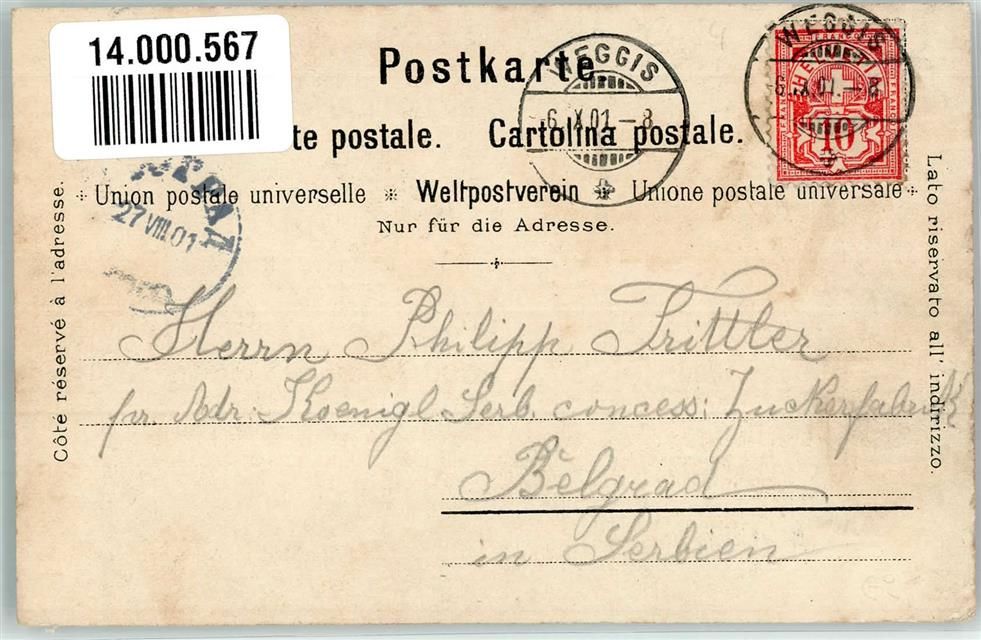 14.000.567
Postkarte
te postale. Cartolina postale.
Union postale universelle ※ Weltpostverein ※ Unione postale universale
Nur für die Adresse.
Côte réservé à l'adresse.
Lato riservato all' indirizzo.
WEGGIS
6. X.01.-8
WEGGIS
6. X.01.-8
HELVETIA
10
27 VIII 01
Herrn Philipp Trittler
pr. Adr. Koenigl Serb. concess: Zuckerfabrik
Belgrad
in Serbien